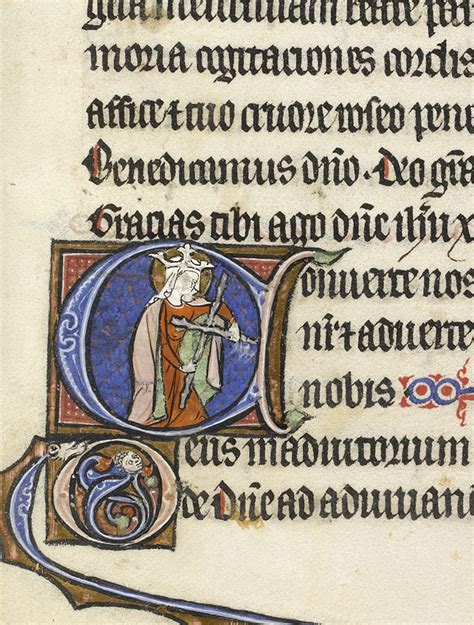 moria cogitaciones cordis
affice ⁊ tuo cruore roseo pene
Benedicamus dn̄o. Deo gr̄a
Gracias tibi ago dn̄e ih̄u x
Conuerte nos
nr̄ ⁊ aduerte
nobis
Deus in adiutorium
de Dn̄e ad adiuuan